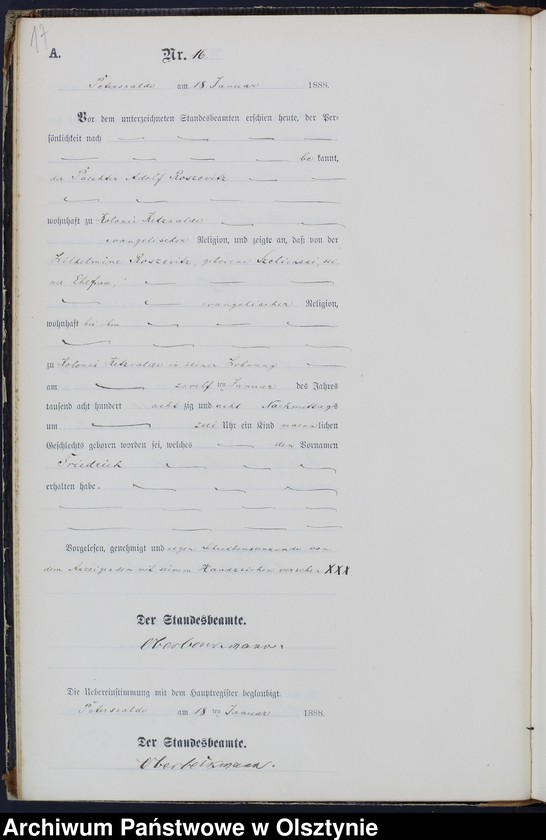 17
A.
Nr. 16
Peterswalde am 18 Januar 1888.
Vor dem unterzeichneten Standesbeamten erschien heute, der Per-
sönlichkeit nach
be kannt,
der Paechter Adolf Koszewitz
wohnhaft zu Kolonie
evangelischer Religion, und zeigte an, daß von der
Wilhelmine Koszewitz, geborene sei-
ner Ehefrau,
evangelischer Religion,
wohnhaft bei ihm
zu Kolonie in seiner Wohnung
am zwoelf ten Januar des Jahres
tausend acht hundert acht zig und acht Nachmittags
um Uhr ein Kind maennlichen
Geschlechts geboren worden sei, welches den Vornamen
Friedrich
erhalten habe.
Vorgelesen, genehmigt und wegen Schreibensunkunde von
dem Anzeigenden mit seinem Handzeichen versehen XXX
Der Standesbeamte.
Die Uebereinstimmung mit dem Hauptregister beglaubigt.
Peterswalde am 18 ten Januar 1888.
Der Standesbeamte.
Archiwum Państwowe w Olsztynie